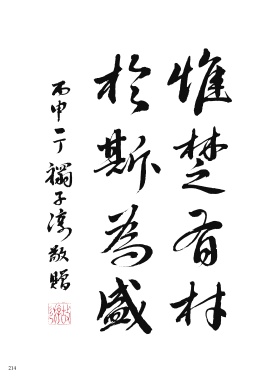 惟楚有材
於斯為盛
丙申
子
敬贈
214